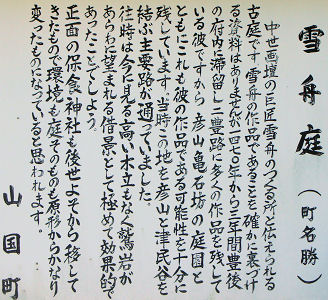 雪舟庭
(町名勝)
中世画壇の巨匠雪舟のつくる所と伝えられる
古庭です。雪舟の作品であることを確かに裏づけ
る資料はありませんが一四七〇年から三年間豊後
の府内に滞留し二豊路に多くの作品を残して
いる彼ですから彦山亀石坊の庭園と
ともにこれも彼の作品である可能性を十分に
残しています。当時この地を彦山と津民谷を
結ぶ主要路が通っていました。
往時は今に見る高い木立もなく鷲岩が
あらわに望まれる借景として極めて効果的で
あったことでしょう。
正面の保食神社も後世よそから移して
きたもので環境も庭そのものも原形からかなり
変ったものになっていると思われます。
山国町